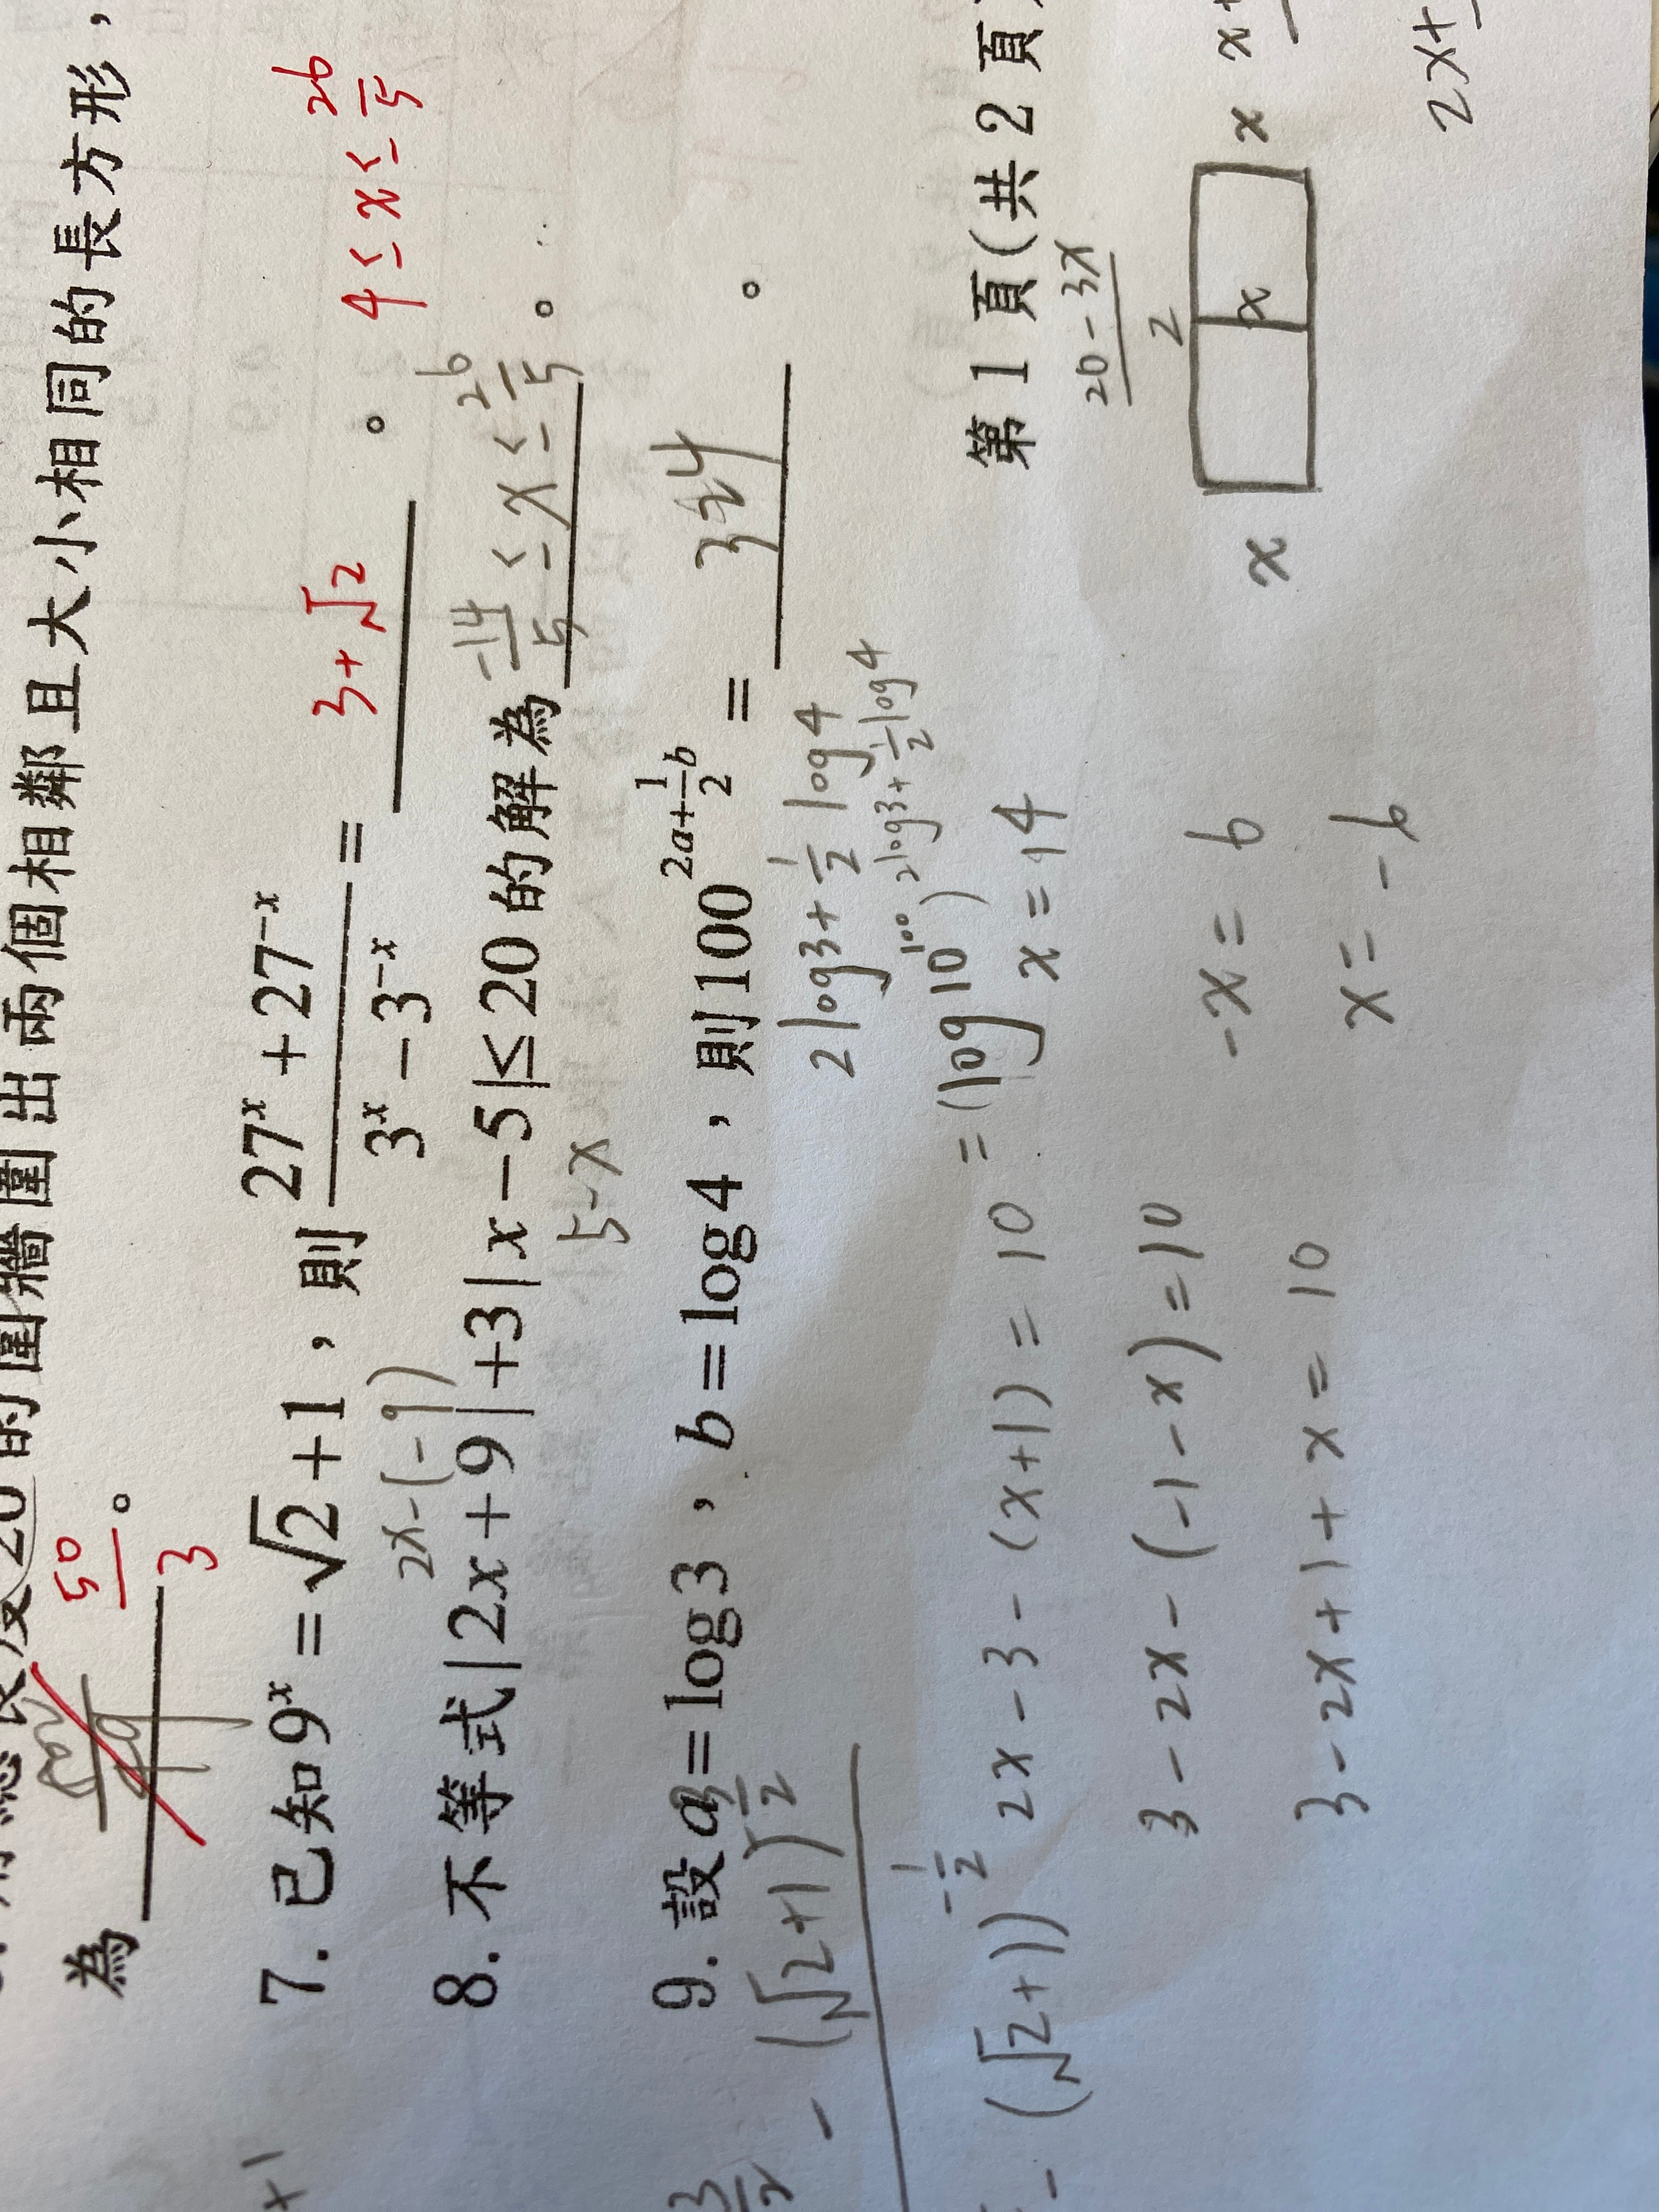 的圍牆圍出兩個相鄰且大小相同的長方形，
為 50/3 。
7. 已知 9^x = √2 + 1，則 (27^x + 27^-x)/(3^x − 3^-x) = ______ 。 3+√2
4 ≤ x ≤ 26/5
2x-(-9)
8. 不等式 |2x+9|+3|x−5|≤20 的解為 -14/5 ≤ x ≤ 26/5 。
5-x
9. 設 a = log3，b = log4，則 100^(2a+(1/2)b) = 324 。
2log3+1/2 log4
(√2+1)^
(√2+1))^-1/2
2x-3-(x+1)=10
x=14
3-2x-(-1-x)=10
-x=6
3-2x+1+x=10
x=-6
第 1 頁(共 2 頁
20-3x
2
x x x
2x+